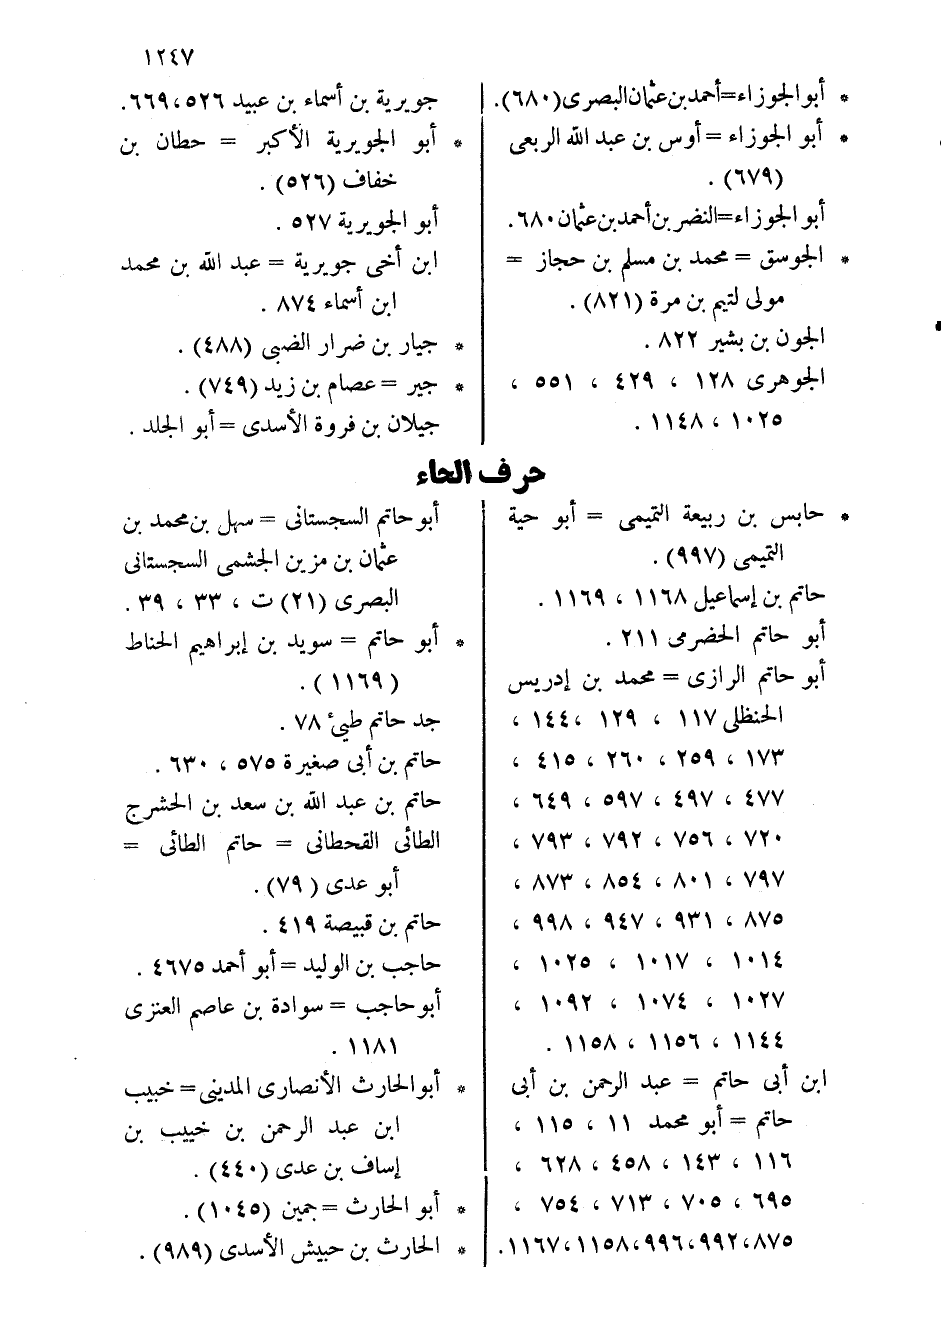 ١٢٤٧
* أبو الجوزاء=أحمد بن عثمان البصرى (٦٨٠).
* أبو الجوزاء = أوس بن عبد الله الربعى
(٦٧٩) .
أبو الجوزاء=النضر بن أحمد بن عثمان ٦٨٠.
* الجوسق = محمد بن مسلم بن حجاز =
مولى لتيم بن مرة (٨٢١) .
الجون بن بشير ٨٢٢ .
الجوهرى ١٢٨ ، ٤٢٩ ، ٥٥١ ،
١٠٢٥ ، ١١٤٨ .
جويرية بن أسماء بن عبيد ٥٢٦ ، ٦٦٩.
* أبو الجويرية الأكبر = حطان بن
خفاف (٥٢٦) .
أبو الجويرية ٥٢٧ .
ابن أخى جويرية = عبد الله بن محمد
ابن أسماء ٨٧٤ .
* جيار بن ضرار الضبى (٤٨٨) .
* جير = عصام بن زيد (٧٤٩) .
جيلان بن فروة الأسدى = أبو الجلد .
حرف الحاء
* حابس بن ربيعة التميمى = أبو حية
التميمى (٩٩٧) .
حاتم بن إسماعيل ١١٦٨ ، ١١٦٩ .
أبو حاتم الحضرمى ٢١١ .
أبو حاتم الرازى = محمد بن إدريس
الحنظلى ١١٧ ، ١٢٩ ، ١٤٤ ،
١٧٣ ، ٢٥٩ ، ٢٦٠ ، ٤١٥ ،
٤٧٧ ، ٤٩٧ ، ٥٩٧ ، ٦٤٩ ،
٧٢٠ ، ٧٥٦ ، ٧٩٢ ، ٧٩٣ ،
٧٩٧ ، ٨٠١ ، ٨٥٤ ، ٨٧٣ ،
٨٧٥ ، ٩٣١ ، ٩٤٧ ، ٩٩٨ ،
١٠١٤ ، ١٠١٧ ، ١٠٢٥ ،
١٠٢٧ ، ١٠٧٤ ، ١٠٩٢ ،
١١٤٤ ، ١١٥٦ ، ١١٥٨ .
ابن أبى حاتم = عبد الرحمن بن أبى
حاتم = أبو محمد ١١ ، ١١٥ ،
١١٦ ، ١٤٣ ، ٤٥٨ ، ٦٢٨ ،
٦٩٥ ، ٧٠٥ ، ٧١٣ ، ٧٥٤ ،
٨٧٥ ، ٩٩٢ ، ٩٩٦ ، ١١٥٨ ، ١١٦٧.
أبو حاتم السجستانى = سهل بن محمد بن
عثمان بن مزين الجشمى السجستانى
البصرى (٢١) ت ، ٣٣ ، ٣٩ .
* أبو حاتم = سويد بن إبراهيم الحناط
(١١٦٩) .
جد حاتم طيئ ٧٨ .
حاتم بن أبى صغيرة ٥٧٥ ، ٦٣٠ .
حاتم بن عبد الله بن سعد بن الحشرج
الطائى القحطانى = حاتم الطائى =
أبو عدى (٧٩) .
حاتم بن قبيصة ٤١٩ .
حاجب بن الوليد = أبو أحمد ٤٦٧٥ .
أبو حاجب = سوادة بن عاصم العنزى
١١٨١ .
* أبو الحارث الأنصارى المدينى = خبيب
ابن عبد الرحمن بن خبيب بن
إساف بن عدى (٤٤٠) .
* أبو الحارث = جمين (١٠٤٥) .
* الحارث بن حبيش الأسدى (٩٨٩) .